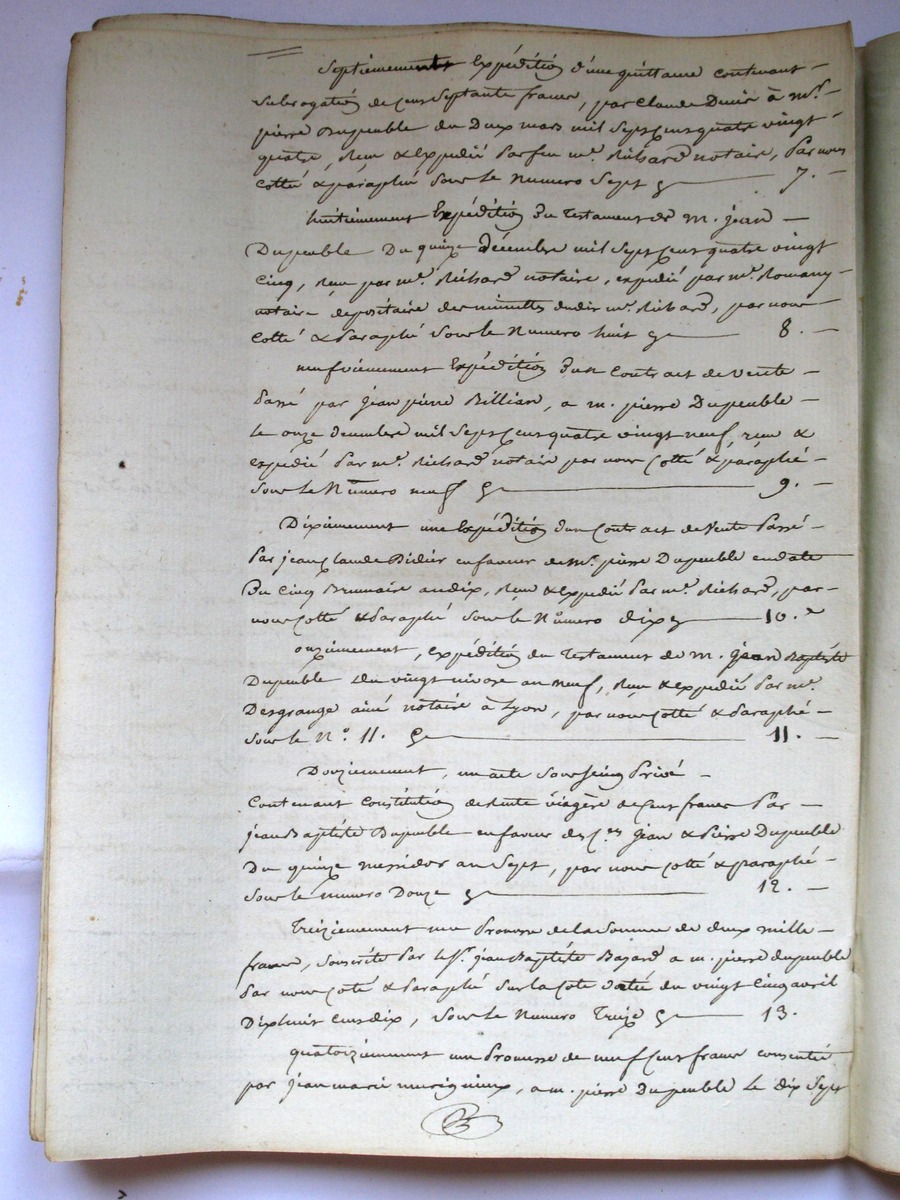 Septiemement Expédition d'une quittance contenant
Subrogation de cent Septante francs, par Claude Denis à mr.
pierre Dupeuble du Deux mars mil Sept Cent quatre vingt
quatre, Recu & Expedié Par feu me. Richard notaire, Par nous
Cotté & paraphé Sous le Numero Sept 7.
huitiemement Expédition Du Testament de m. jean
Dupeuble Du quinze décembre mil Sept Cent quatre vingt
Cinq, Recu par me. Richard notaire, expédié par me. Romany
notaire dépositaire des minuttes dudit me. Richard, par nous
Cotté & Paraphé Sous le Numero huit 8.
neufviemement Expédition D'un Contract de Vente
Passé par jean pierre Billian, a m. pierre Dupeuble
le onze decembre mil Sept Cent quatre vingt neuf, recu &
expédié Par me. Richard notaire par nous Cotté & paraphé
Sous le Numero neuf 9.
Dixiemement une Expédition d'un Contract de Vente Passé
Par jean Claude Didier en faveur de Mr. pierre Dupeuble en date
Du Cinq Brumaire an dix, Recu & Expedié Par me. Richard, par
nous Cotté & Paraphé Sous le Numero dix 10.
onziemement, expédition du Testament de m. jean Baptiste
Dupeuble du vingt nivose an neuf, Recu & expedié Par me.
Desgrange ainé notaire à Lyon, par nous Cotté & Paraphé
Sous le No. 11. 11.
Douziemement, un acte Sous Seing Privé
Contenant Constitution de Rente viagère de Cent francs Par
jean Baptiste Dupeuble en faveur des Cens jean & Pierre Dupeuble
Du quinze messidor an Sept, par nous Cotté & paraphé
Sous le numero Douze 12.
Treiziemement une Promesse de la Somme de deux mille
francs, Souscrite Par le Sr. jean Baptiste Bazard a m. pierre dupeuble
Par nous Cotté & Paraphé Sur la Cote datée du vingt Cinq avril
Dix huit Cent dix, Sous le Numero Treize 13.
quatorziemement une Promesse de neuf Cent francs consentie
par jean marie a m. pierre Dupeuble le dix Sept